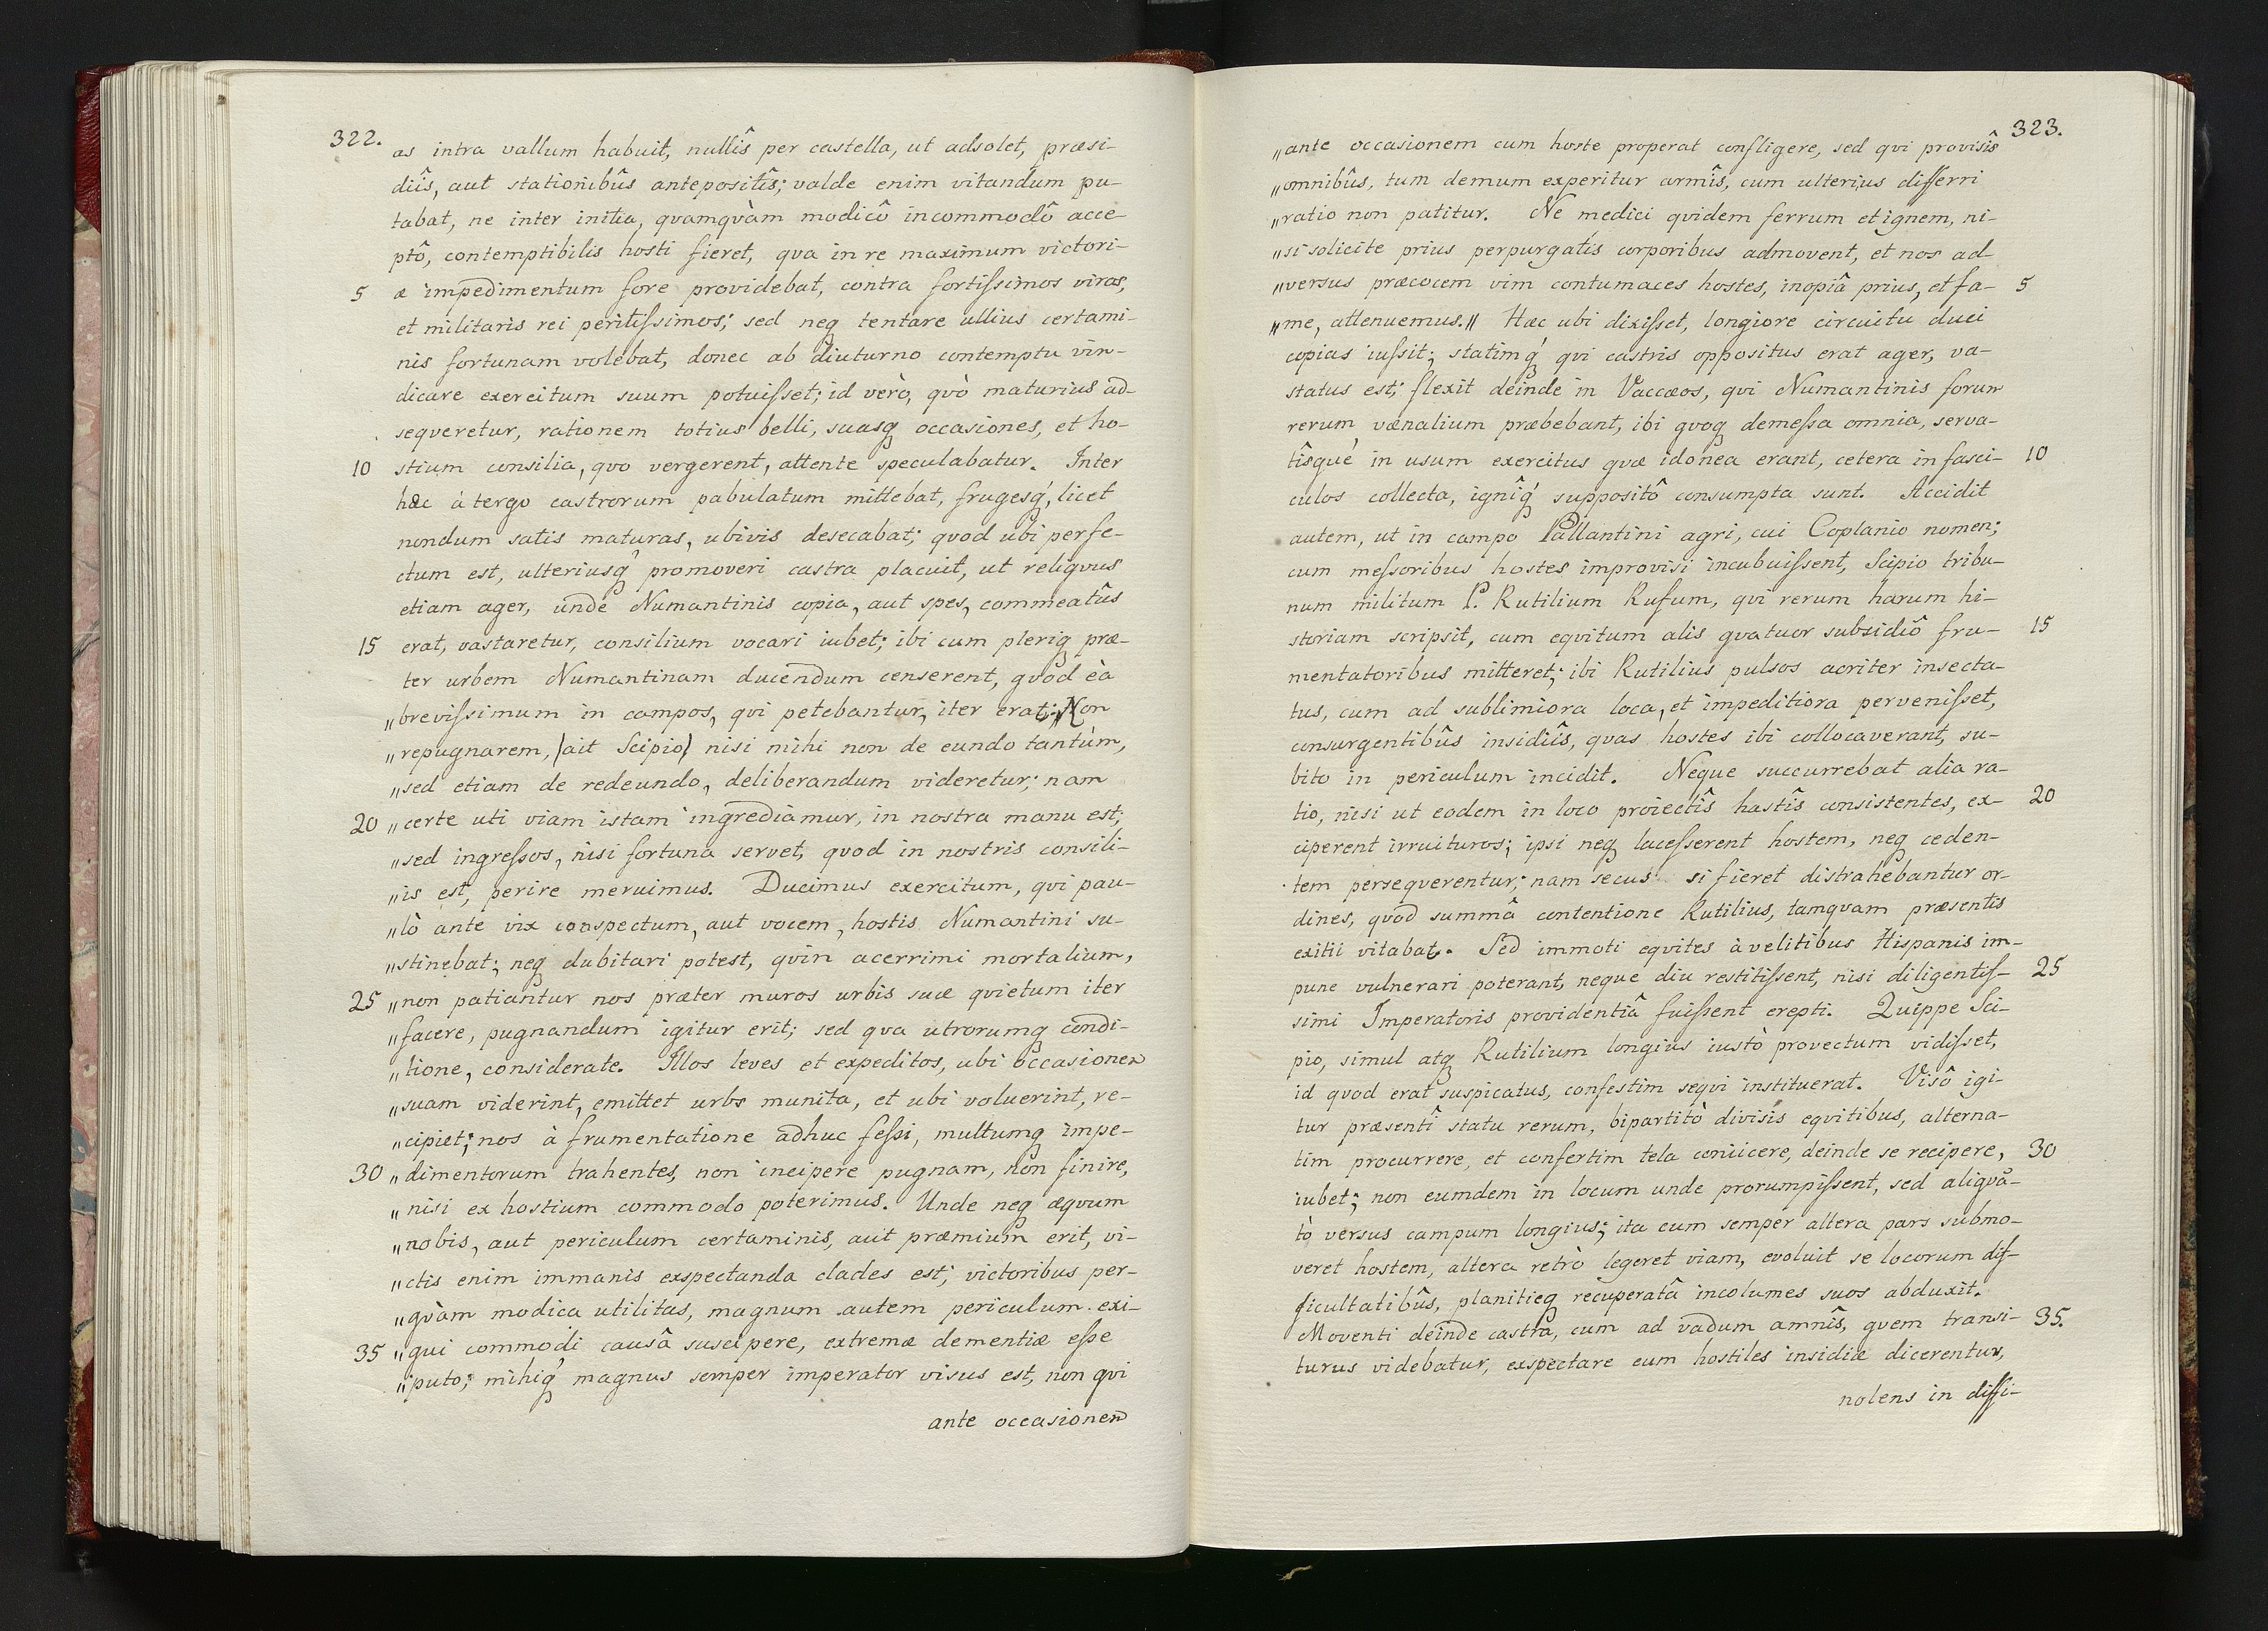 322.
as intra vallum habuit, nullîs per castella, ut adsolet, præsi-
diîs, aut stationibûs antepositîs; valde enim vitandum pu-
tabat, ne inter initia, qvamqvàm modicô incommodô acce-
ptô, contemptibilis hosti fieret, qva in re maximum victori-
5 æ impedimentum fore providebat, contra fortissimos viros,
et militaris rei peritissimos; sed neq tentare ullius certami-
nis fortunam volebat, donec ab diuturno contemptu vin-
dicare exercitum suum potuisset; id verò, qvò maturius ad-
seqveretur, rationem totius belli, suasq occasiones, et ho-
10 stium consilia, qvo vergerent, attente speculabatur. Inter
hæc à tergo castrorum pabulatum mittebat, frugesq, licet
nondum satis maturas, ubivis desecabat; qvod ubi perfe-
ctum est, ulteriusq promoveri castra placuit, ut reliqvus
etiam ager, unde Numantinis copia, aut spes, commeatûs
15 erat, vastaretur, consilium vocari iubet; ibi cum pleriq præ-
ter urbem Numantinam ducendum censerent, qvod eà
„brevissimum in campos, qvi petebantur, iter erat; Non
„repugnarem, (ait Scipio) nisi mihi non de eundo tantùm,
„sed etiam de redeundo, deliberandum videretur; nam
20 „certe uti viam istam ingrediamur, in nostra manu est;
„sed ingressos, nisi fortuna servet, qvod in nostris consili-
„is est, perire meruimus. Ducimus exercitum, qvi pau-
„lò ante vix conspectum, aut vocem, hostis Numantini su-
„stinebat; neq dubitari potest, qvin acerrimi mortalium,
25 „non patiantur nos præter muros urbis suæ qvietum iter
„facere, pugnandum igitur erit; sed qva utrorumq condi-
„tione, considerate. Illos leves et expeditos, ubi occasionem
„suam viderint, emittet urbs munita, et ubi voluerint, re-
„cipiet; nos à frumentatione adhuc fessi, multumq impe-
30 „dimentorum trahentes, non incipere pugnam, non finire,
„nisi ex hostium commodo poterimus. Unde neq æqvum
„nobis, aut periculum certaminis, aut præmium erit, vi-
„ctis enim immanis exspectanda clades est; victoribus per-
„qvàm modica utilitas, magnum autem periculum exi-
35 „gui commodi causâ suscipere, extremæ dementiæ esse
„puto; mihiq magnus semper imperator visus est, non qvi
ante occasionem
323.
„ante occasionem cum hoste properat confligere, sed qvi provisîs
„omnibûs, tum demum experitur armîs, cum ulterius differri
„ratio non patitur. Ne medici qvidem ferrum et ignem, ni-
„si solicite prius perpurgatis corporibus admovent, et nos ad
„versus præcocem vim contumaces hostes, inopiâ prius, et fa- 5
„me, attenuemus.„ Hæc ubi dixisset, longiore circuitu duci
copias iussit; statimq qvi castris oppositus erat ager, va-
status est; flexit deinde in Vaccæos, qvi Numantinis forum
rerum vænalium præbebant, ibi qvoq demessa omnia, serva-
tîsque in usum exercitus qvæ idonea erant, cetera in fasci- 10
culos collecta, ignîq suppositô consumpta sunt. Accidit
autem, ut in campo Pallantini agri, cui Coplanio nomen;
cum messoribus hostes improvisi incubuissent, Scipio tribu-
num militum P. Rutilium Rufum, qvi rerum harum hi-
storiam scripsit, cum eqvitum alis qvatuor subsidiô fru- 15
mentatoribus mitteret; ibi Rutilius pulsos acriter insecta-
tus, cum ad sublimiora loca, et impeditiora pervenisset,
consurgentibûs insidiîs, qvas hostes ibi collocaverant, su-
bito in periculum incidit. Neque succurrebat alia ra-
tio, nisi ut eodem in loco proiectîs hastîs consistentes, ex- 20
ciperent irruituros; ipsi neq lacesserent hostem, neq ceden-
tem perseqverentur; nam secus si fieret distrahebantur or-
dines, qvod summâ contentione Rutilius, tamqvam præsentis
exitii vitabat. Sed immoti eqvites à velitibus Hispanis im-
pune vulnerari poterant, neque diu restitissent, nisi diligentis- 25
simi Imperatoris providentiâ fuissent erepti. Quippe Sci-
pio, simul atq Rutilium longius iustò provectum vidisset,
id qvod erat suspicatus, confestim seqvi instituerat. Visô igi-
tur præsentî statu rerum, bipartitò divisis eqvitibus, alterna-
tim procurrere, et confertim tela coniicere, deinde se recipere, 30
iubet; non eumdem in locum unde prorumpissent, sed aliqvâ-
tò versus campum longius; ita cum semper altera pars submo-
veret hostem, altera retrò legeret viam, evoluit se locorum dif-
ficultatibûs, planitieq recuperatâ incolumes suos abduxit.
Moventi deinde castra, cum ad vadum amnîs, qvem transi- 35.
turus videbatur, exspectare eum hostiles insidiæ dicerentur,
nolens in diffi-